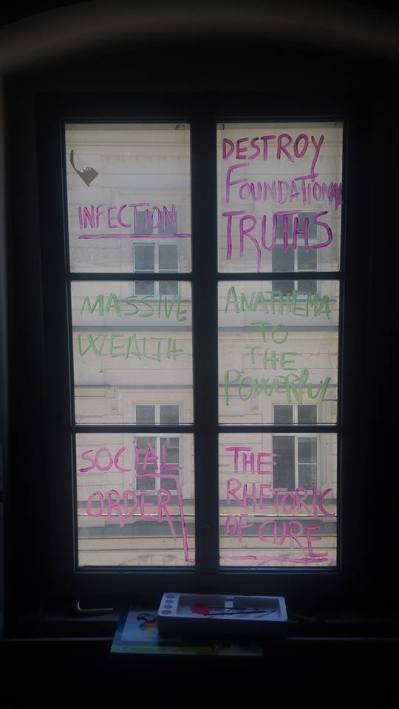 INFECTION
DESTROY
FOUNDATIONAL
TRUTHS
MASSIVE
WEALTH
ANATHEMA
TO
THE
POWERFUL
SOCIAL
ORDER
THE
RHETORIC
OF CURE